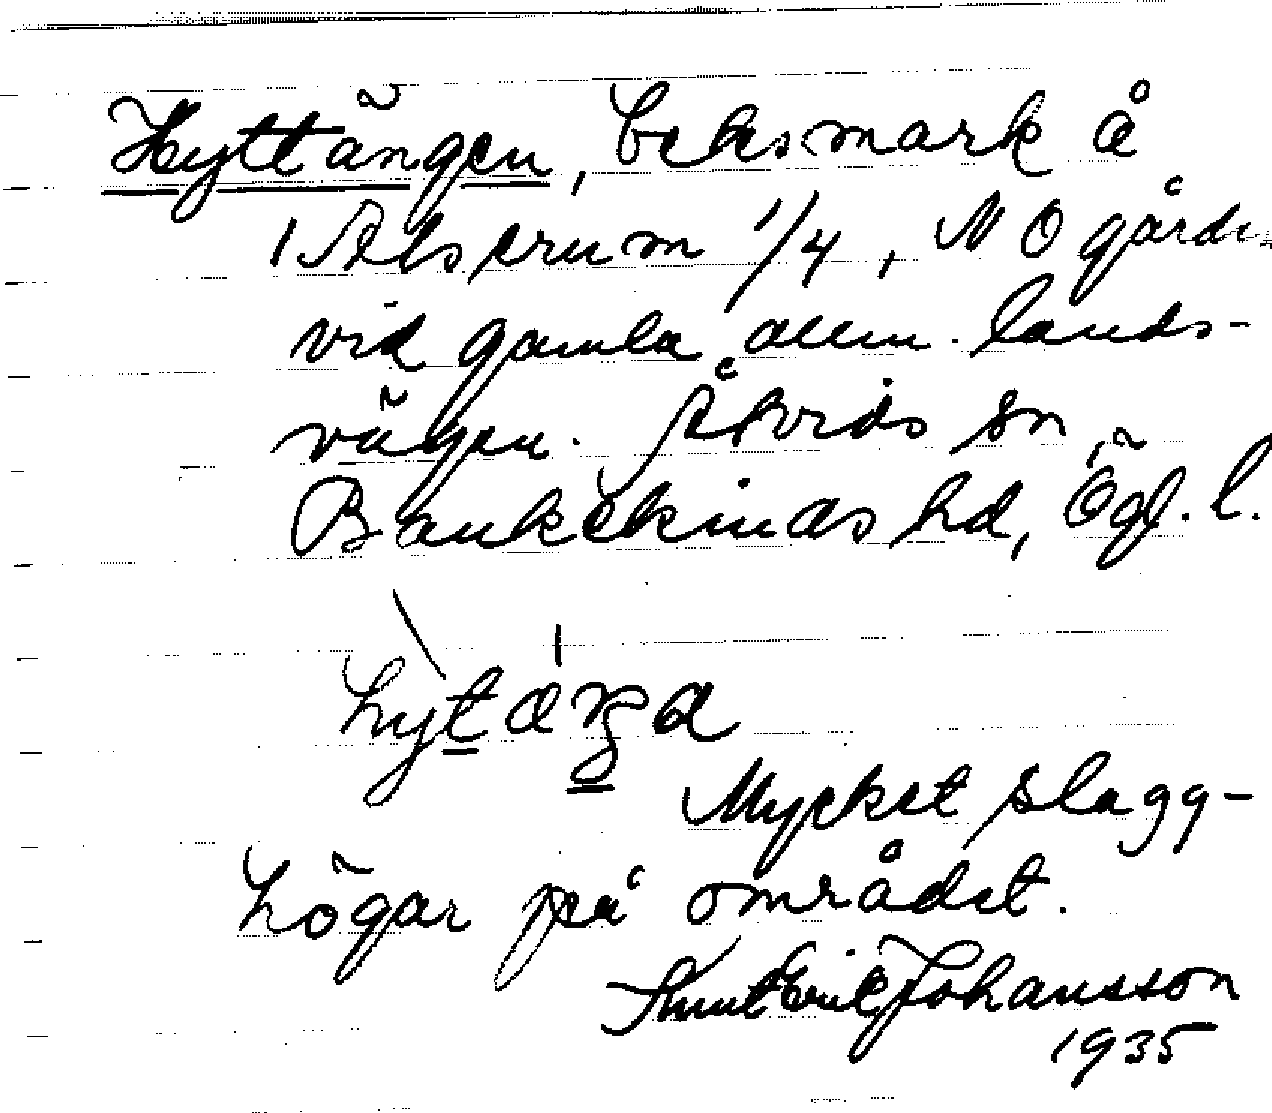 Hyttängen, betesmark å
1 Adserum 1/4, NO gården
vid gamla allm. lands-
vägen. Åtvids sn
Bankekinds hd, Ögl. l.
hytæŋa
Mycket slagg-
högar på området.
Knut Erik Johansson
1935